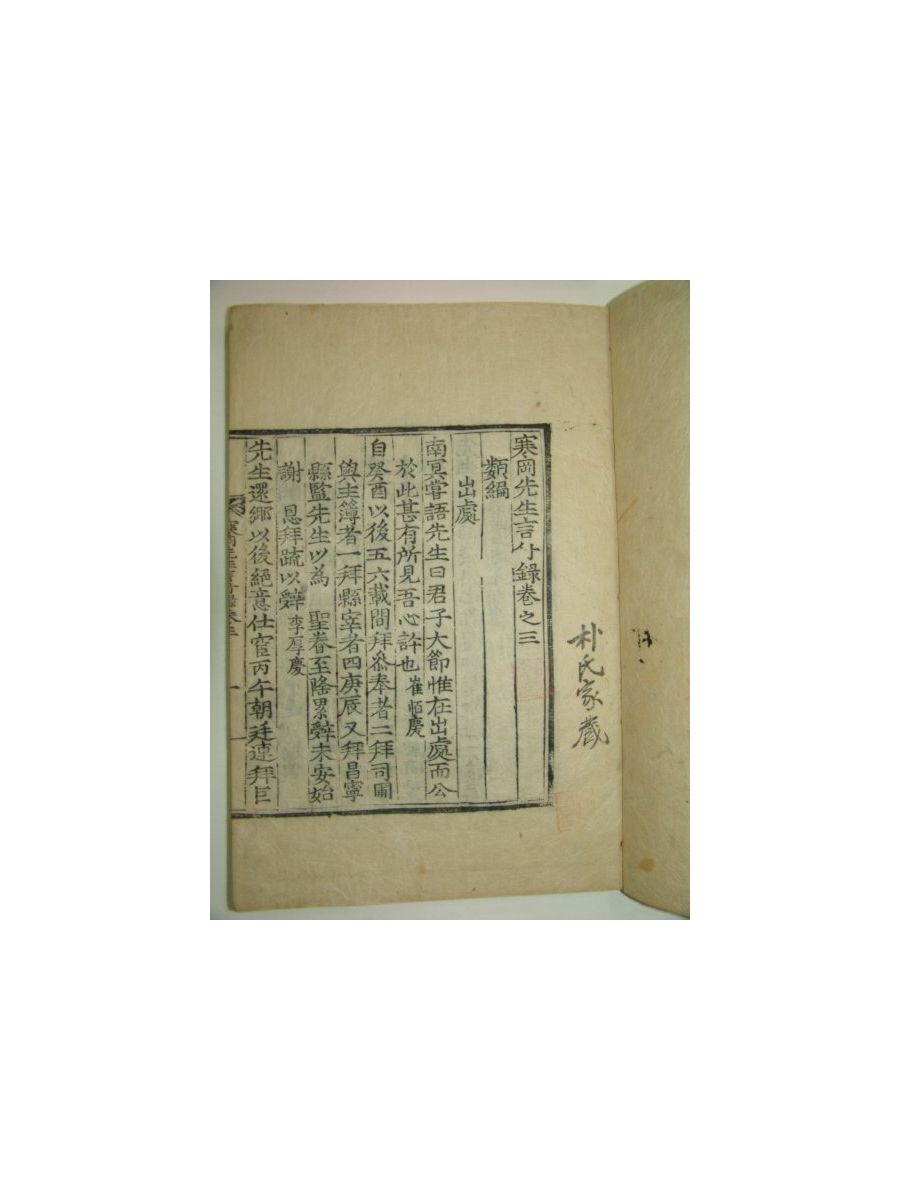 寒岡先生言行錄卷之三
類編
出處
南冥嘗語先生曰君子大節惟在出處而公
於此甚有所見吾心許也崔恒慶
自癸酉以後五六載間拜叅奉者二拜司圃
與主簿者一拜縣宰者四庚辰又拜昌寧
縣監先生以為 聖眷至隆累辭未安始
謝 恩拜疏以辭李厚慶
先生還鄉以後絕意仕宦丙午朝廷連拜巨
朴氏家藏